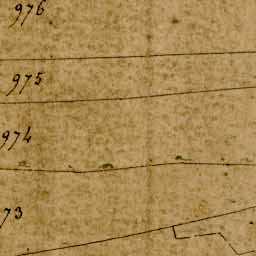 976
975
974
73